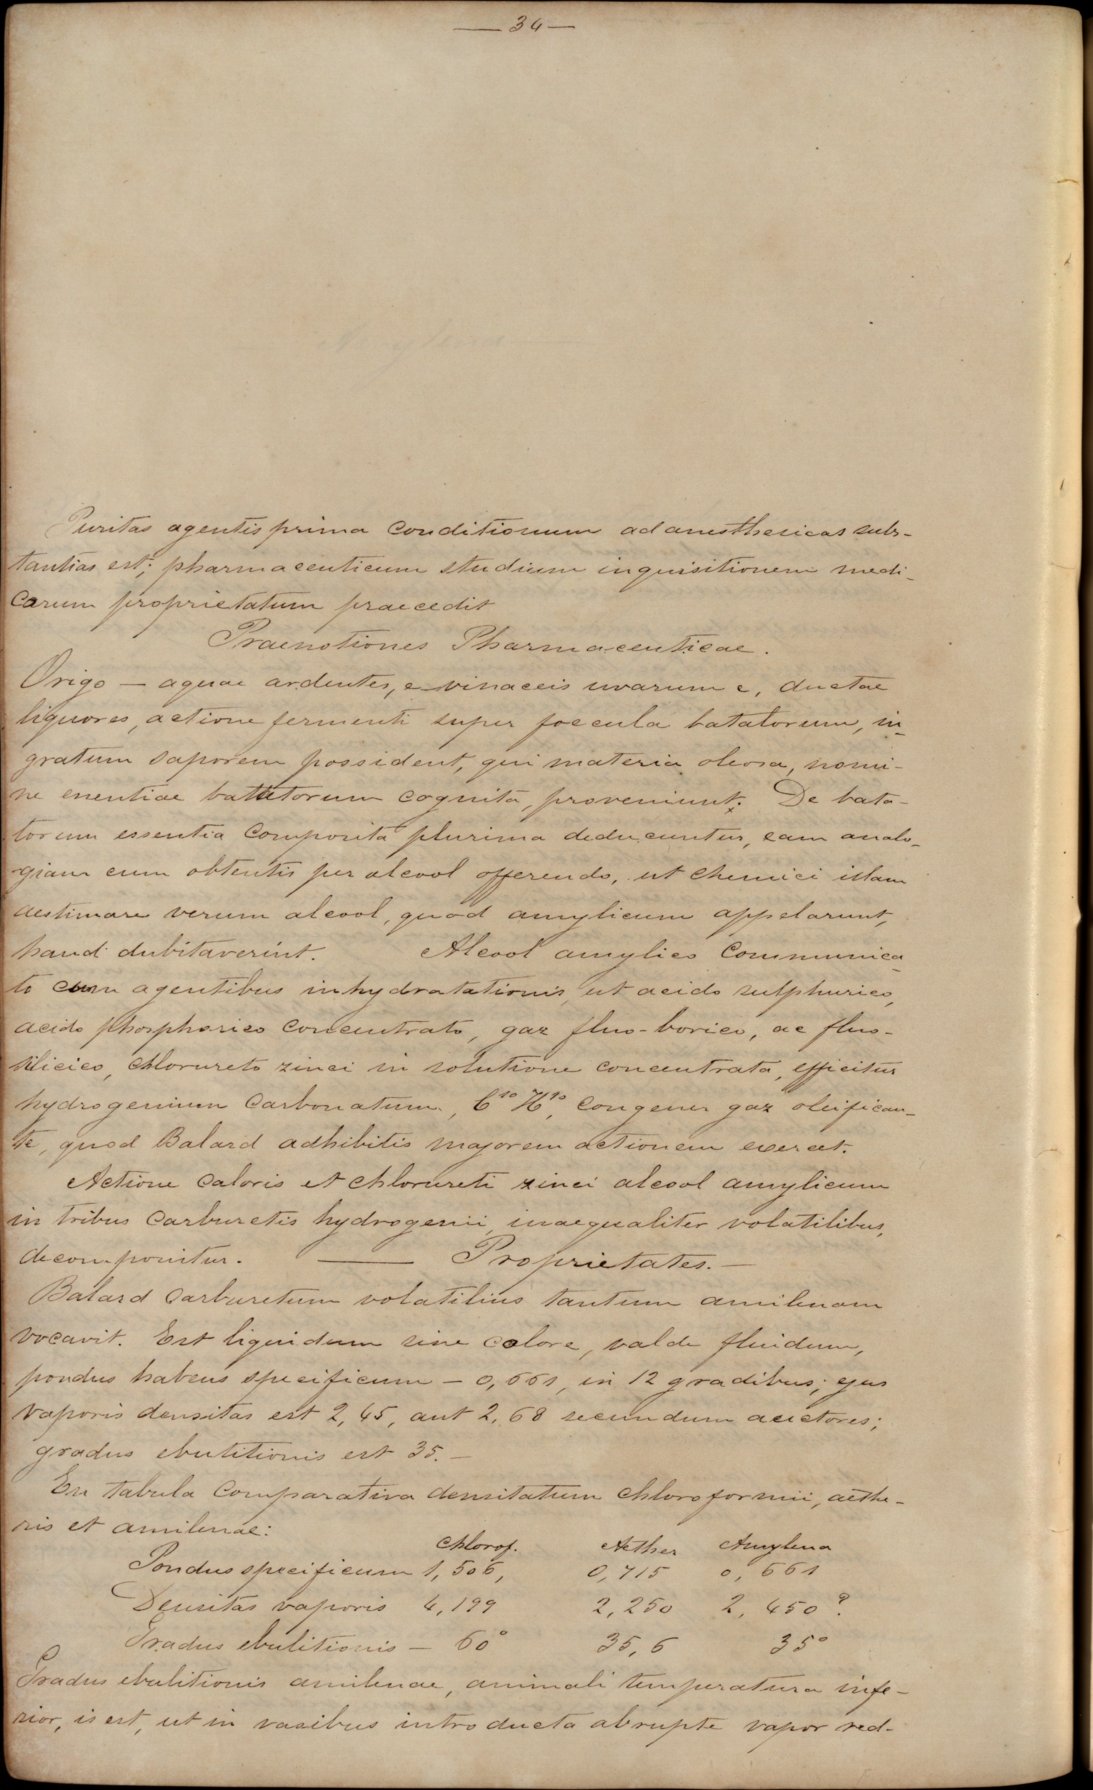 — 34 —
Puritas agentis prima conditionum ad anesthesicas subs-
tantias est; pharmaceuticum studium inquisitionem medi-
carum proprietatum praecedit
Praenotiones Pharmaceuticae.
Origo — aquae ardentes, e vinaceis uvarum e, ductae
liquores, actione fermenti super foecula batatorum, in-
gratum saporem possident, qui materia oleosa, nomi-
ne enentiae battetorum cognita, proveniunt; De bata-
torum essentia composita plurima deducuntur, eam analo-
giam cum obtentis per alcool offerendo, ut chemici istam
aestimare verum alcool, quod amylicum appelarunt,
haud dubitaverint. Alcool amylico communica-
to cum agentibus inhydratationis, ut acido sulphurico,
acido phosphorico concentrato, gaz fluo-borico, ac fluo-
silicico, chlorureto zinci in solutione concentrata, efficitur
hydrogenium carbonatum, C¹⁰ H¹⁰, congener gaz oleifican-
te, quod Balard adhibitis majorem actionem exercet.
Actione caloris et chlorureti zinci alcool amylicum
in tribus carburetis hydrogenii, inaequaliter volatilibus,
decomponitur. — Proprietates. —
Balard carburetum volatilius tantum amilenam
vocavit. Est liquidum sine colore, valde fluidum,
pondus habens specificum — 0,661, in 12 gradibus; ejus
vaporis densitas est 2,45, aut 2,68 secundum auctores;
gradus ebutitionis est 35. —
En tabula comparativa densitatum chloroformii, aethe-
ris et amilenae:
Chlorof. Aether Amylena
Pondus specificum 1,506, 0,715 0,661
Densitas vaporis 4,199 2,250 2,450?
Gradus ebulitionis — 60° 35,6 35°
Gradus ebulitionis amilenae, animali temperatura infe-
rior, is est, ut in vasibus introducta abrupte vapor red-